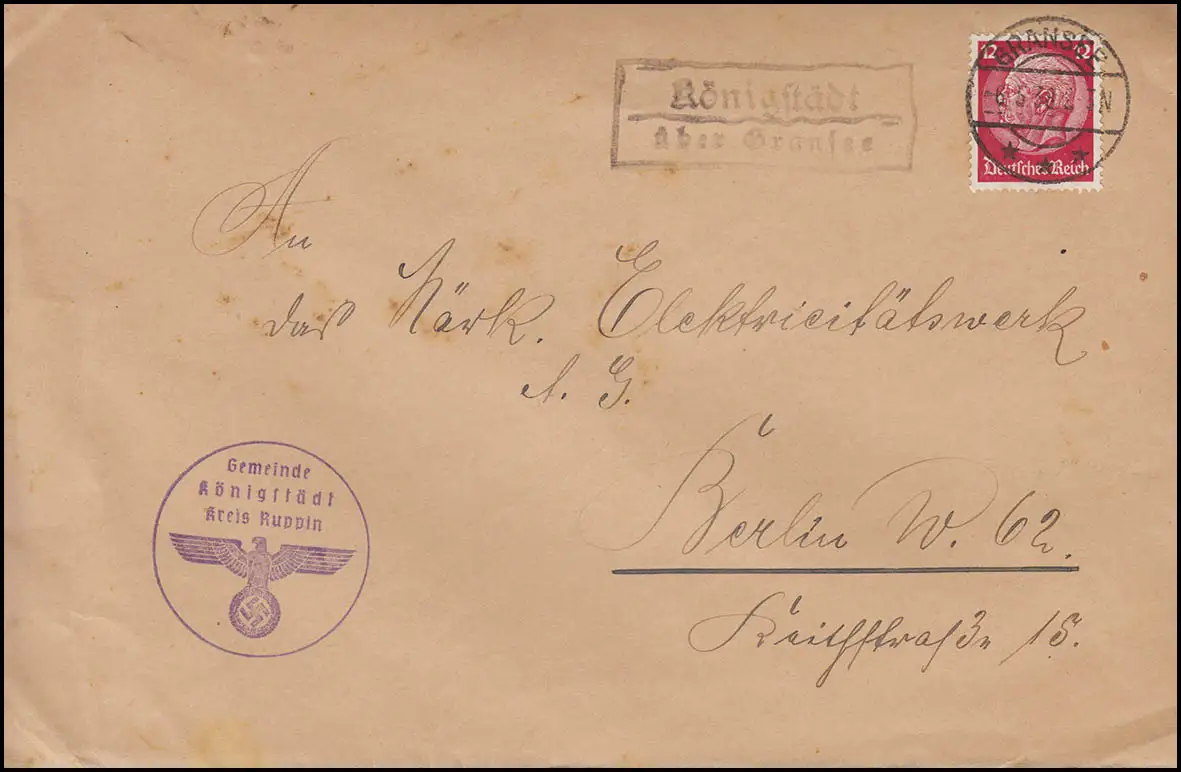 Königstädt
über Gransee
12 12
GRANSEE
Deutsches Reich
An
das Märk. Elektricitätswerk
A. G.
Berlin W. 62.
Keithstraße 15.
Gemeinde
Königstädt
Kreis Ruppin